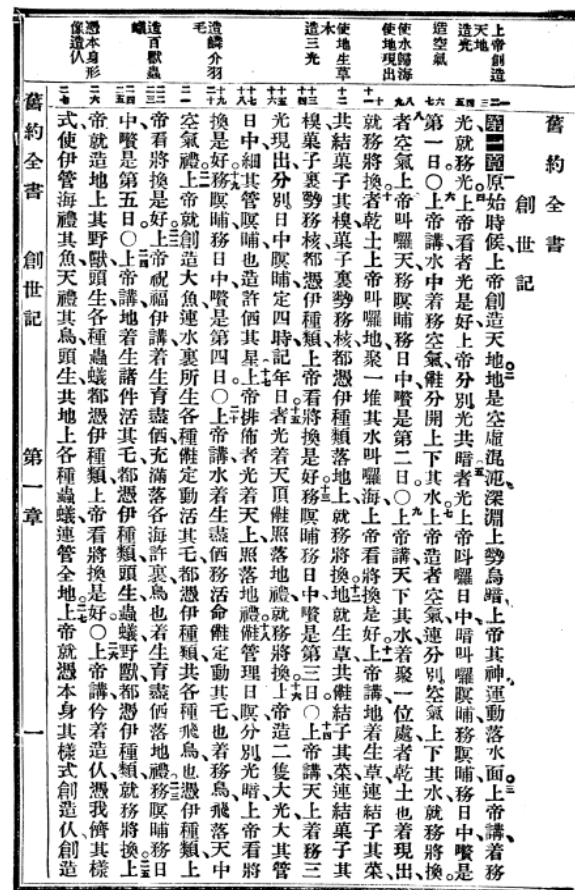 舊約全書
創世記
上帝創造天地
造光
造空氣
使水歸海使地現出
使地生草木
造三光
造鱗介羽毛
造百獸蟲蟻
憑本身形像造仈
第一章原始時候、上帝創造天地。地是空虛混沌、深淵上勢烏暗、上帝其神、運動落水面。上帝講着務
光就務光。上帝看者光是好、上帝分別光共暗。者光上帝叫囉日中、暗叫囉暝晡、務暝晡務日中、囋是
第一日。○上帝講水中着務空氣分開上下其水。上帝造者空氣、連分別空氣上下其水、就務將換。
者空氣上帝叫囉天、務暝晡務日中、囋是第二日。○上帝講天下其水着聚一位處、者乾土也着現出、
就務將換。者乾土上帝叫囉地、聚一堆其水叫囉海、上帝看將換是好。上帝講地着生草、連結子其菜、
共結菓子其樹、菓子裏勢務核、都憑伊種類落地上、就務將換。地就生草、共結子其菜、連結菓子其
樹、菓子裏勢務核、都憑伊種類、上帝看將換是好。務暝晡務日中、囋是第三日。○上帝講天上着務三
光現出、分別日中暝晡、定四時記年日。者光着天頂照落地禮、就務將換。上帝造二隻大光、大其管
日中、細其管暝晡、也造許価其星。上帝排佈者光着天上、照落地禮、管理日暝、分別光暗、上帝看將
換是好。務暝晡務日中、囋是第四日。○上帝講水着生盡価務活命定動其乇、也着務鳥飛落天中
空氣禮。上帝就創造大魚、連水裏所生各種定動活其乇、都憑伊種類、共各種飛鳥也憑伊種類、上
帝看將換是好。上帝祝福伊講、着生育盡価、充滿落各海許裏、鳥也着生育盡価落地禮。務暝晡務日
中、囋是第五日。○上帝講地着生諸件活其乇、都憑伊種類、頭生蟲蟻野獸、都憑伊種類、就務將換。上
帝就造地上其野獸頭生各種蟲蟻、都憑伊種類、上帝看將換是好。○上帝講、伶着造仈、憑我儕其樣
式、使伊管海禮其魚、天禮其鳥、頭生共地上各種蟲蟻、連管全地。上帝就憑本身其樣式創造仈、創造
舊約全書 創世記 第一章 一